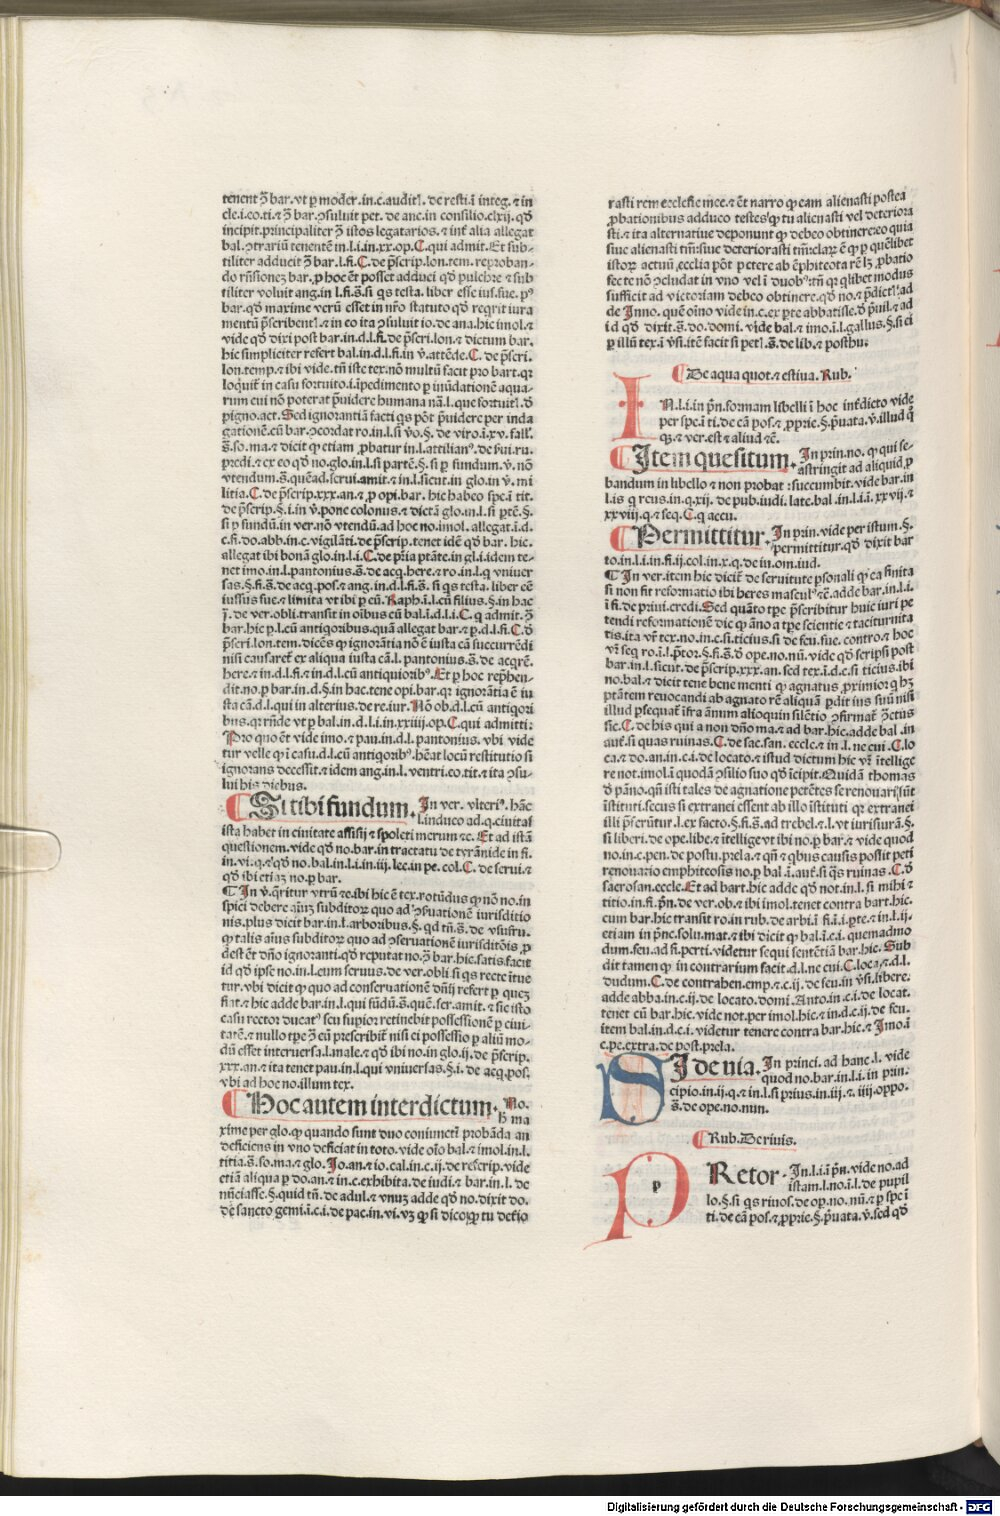 tenent ꝯ̃ bar. vt p moder. in.c. auditꝭ. de resti.ĩ integ. ⁊ in
cle.i.co.ti. ⁊ ꝯ̃ bar. ꝯsuluit pet. de anc. in consilio.clxij. qđ
incipit. principaliter ꝯ̃ istos legatarios. ⁊ inf alia allegat
bal. ꝯtrariũ tenentẽ in.l.i. in.xx.op. C. qui admit. Et sub-
tiliter adducit ꝯ̃ bar.l.fi. C. de p̃scrip.lon.tem. reproban-
do rñsiones bar. p hoc ẽt posset adduci qđ pulchre ⁊ sub
tiliter voluit ang. in l.fi.§.si qs testa. liber esse ius.sue.
bar. qđ maxime verũ esset in nr̃o statuto qđ regrit iura
mentũ p̃scribentꝭ. ⁊ in eo ita ꝯsuluit io. de ana. hic imol. ⁊
vide qđ dixi post bar. in.d.l.fi. de p̃scri.lon. ⁊ dictum bar.
hic simpliciter refert bal. in.d.l.fi. in v̾. attẽde. C. de p̃scri.
lon.temp. ⁊ ibi vide. tñ iste tex. nõ multũ facit pro bart. qr
loquit̃ in casu fortuito. i. ĩpedimento p inũdationẽ aqua-
rum cui nõ poterat p̃uidere humana nã.l. que fortuitꝭ. đ
pigno.act. Sed ignorantiã facti qs põt p̃uidere per inda
gationẽ. cũ bar. ꝯcordat ro. in.l.si v̾o.§. de viro. ĩ.xv. fall.
§.so.ma. ⁊ dicit ꝙ etiam ꝓbatur in.l. attilian⁹. de ẜui.ru.
predi. ⁊ ex eo qđ no.glo. in.l.si partẽ.§. si p fundum. v̾. nõ
vtendum. §. quẽad. ſerui.amit. ⁊ in.l. sicut. in glo. in v̾. mi
litia. C. de p̃scrip.xxx.an. ⁊ p opi.bar. hic habeo spe.ĩ tit.
de p̃scrip.§.i. in v̾. pone colonus. ⁊ dictã glo. in.l. si ptẽ.§.
si p fundũ. in ver. nõ vtendũ. ad hoc no. imol. allegat.ĩ.d.
c.fi.do.abb. in.c. vigilãti. de p̃scrip. tenet idẽ qđ bar. hic.
allegat ibi bonã glo. in.l.i. C. de p̃ria ptãte. in gl.i. idem te-
net imo. in.l. pantonius.§. de acq.here. ⁊ ro. in.l. q vniuer
sas.§.fi.§. de acq.pos. ⁊ ang. in.d.l.fi.§. si qs testa. liber eẽ
iussus fue. ⁊ limita vt ibi p eũ. Raph.ĩ.l. cũ filius.§. in hac
ĩ. de ver.obli. transit in oĩbus cũ bal.ĩ.d.l.i. C. q admit. ꝯ̃
bar. hic p.l. cũ antiqoribus. quã allegat bar. ⁊ p.d.l.fi. C. đ
p̃scri.lon.tem. dicẽs ꝙ ignorãtia nõ ẽ iusta cã succurrẽdi
nisi causaret̃ ex aliqua iusta cã.l. pantonius.§. de acqrẽ.
here. ⁊ in.d.l.fi. ⁊ in.d.l. cũ antiquiorib⁹. Et p hoc rep̃hen-
dit. no. p bar. in.d.§. in hac. tene opi.bar. qr ignorãtia ẽ iu
sta cã.d.l. qui in alterius. de re.iur. Nõ ob.d.l. cũ antiqori
bus. qr rñde vt p bal. in.d.l.i. in.xxiiij.op. C. qui admitti:
Pro quo ẽt vide imo. ⁊ pau. in.d.l. pantonius. vbi vide
tur velle ꝙ ĩ casu.d.l. cũ antiqorib⁹. hẽat locũ restitutio si
ignorans decessit. ⁊ idem ang. in.l. ventri.eo.tit. ⁊ ita ꝯsu-
lui his diebus.
¶ Si tibi fundum. In ver. vlteri⁹. hãc
l. induco ad.q. ciuitas
ista habet in ciuitate assisij ⁊ spoleti merum ⁊c. Et ad istã
questionem. vide qđ no.bar. in tractatu de tyrãnide in fi.
in.vi.q. ⁊ qđ no.bal. in.l.i. in.iij.lec. in pe.col. C. de serui. ⁊
qđ ibi etiaz no. p bar.
¶ In v̾. qrĩtur vtrũ ⁊c. ibi hic ẽ tex. rotũdus ꝙ nõ no. in-
spici debere aĩuz subditoꝝ quo ad ꝯsuationẽ iurisditio
nis. plus dicit bar. in.l. arboribus.§. qđ tñ.§. de vsufru.
ꝙ talis aĩus subditoꝝ quo ad ꝯseruationẽ iurisditõis ꝓ
dest ẽt dño ignoranti. qđ reputat no. ꝯ̃ bar. hic satis facit
id qđ ipse no. in.l. eum seruus. de ver.obli si qs recte ĩtue
tur. vbi dicit ꝙ quo ad conseruationẽ dñij refert p quez
fiat. ⁊ hic adde bar. in.l. qui fũdũ.§. quẽ.ser.amit. ⁊ sic isto
casu rector ducat⁹ seu supior retinebit possessionẽ p ciui-
tatẽ. ⁊ nullo tpe ꝯ̃ eũ prescribit̃ nisi ei possessio p aliũ mo-
dũ esset interuersa.l. male. ⁊ qđ ibi no. in glo.ij. de p̃scrip.
xxx.an. ⁊ ita tenet pau. in.l. qui vniuersas.§.i. de acq.pos.
vbi ad hoc no. illum tex.
¶ Hoc autem interdictum. No.
h̃ ma
xime per glo. ꝙ quando sunt duo coniunctĩ probãda an
deficiens in vno deficiat in toto. vide oĩo bal. ⁊ imol. in.l.
titia.§.so.ma. ⁊ glo. Jo.an. ⁊ io.cal. in.c.ij. de rescrip. vide
etiã aliqua p do.an. ⁊ in.c. exhibita. de iudi. ⁊ bar. in.l. de
nũciasse.§. quid tñ. de adul. ⁊ vnuz adde qđ no. dixit do.
de sancto gemi.ĩ.c.i. de pac. in.vi. vz ꝙ si dico ꝙ tu detĩo
rasti rem ecclesie mee. ⁊ ẽt narro ꝙ eam alienasti postea
ꝓbationibus adduco testes ꝙ tu alienasti vel deteriora
sti. ⁊ ita alternatiue deponunt ꝙ debeo obtinere: eo quia
siue alienasti tm̃: siue deteriorasti tm̃: claꝝ ẽ ꝙ p quẽlibet
istoꝝ actuũ, ecclia põt petere ab ẽphiteota rẽ lꝫ ꝓbatio
fec te nõ ꝯcludat in vno vel ĩ duob⁹: tñ qr qlibet modus
sufficit ad victoriam debeo obtinere. qđ no. ⁊ p̃dictꝭ ad
de Inno. quẽ oĩno vide in.c. ex pte abbatisse. đ p̃uil. ⁊ ad
id qđ dixit.§.do.domi. vide bal. ⁊ imo.ĩ.l. gallus.§. si ei
p illũ tex.ĩ v̾si. itẽ facit si petꝭ.§. de lib. ⁊ posthu.
¶ De aqua quot. ⁊ estiua. Rub.
I
N.l.i. in p̃n. formam libelli ĩ hoc int̃dicto vide
per spe.ĩ ti. de cã pos. ⁊ ꝓprie.§. p̃uata. v̾. illud ꝗ̃
ꝗ. ⁊ ver. est ⁊ aliud ⁊c̃.
¶ Item quesitum. In prin. no. ꝙ qui se-
astringit ad aliquid ꝓ
bandum in libello ⁊ non probat: succumbit. vide bar. in
l. is q reus. in.q.xij. de pub.iudi. late.bal. in.l.i.ĩ.xxvij. ⁊
xxviij.q. ⁊ seq. C. q accu.
¶ Permittitur. In prin. vide per istum.§.
permittitur. qđ dixit bar
to. in.l.i. in fi.ij.col. in.x.q. de in.om.iud.
¶ In ver. item hic dicit̃ de seruitute psonali ꝙ ea finita
si non fit reformatio ibi heres mascul⁹ ⁊c̃. adde bar. in.l.i.
ĩ fi. de priui.credi. Sed quãto tpe p̃scribitur huic iuri pe
tendi reformationẽ dic ꝙ ãno a tpe scientie ⁊ taciturnita
tis. ita vr̃ tex. no. in.c.si. ticius. si de feu.fue.contro. ⁊ hoc
vr̃ seq ro.ĩ.l. p̃tor.§.fi.§. đ ope.no.nũ. vide qđ scripsi post
bar. in.l. sicut. de p̃scrip.xxx.an. sed tex.ĩ.d.c. si ticius. ibi
no. bal. ⁊ dicit tene bene menti ꝙ agnatus ꝓximior q hꝫ
ptãtem reuocandi ab agnato rẽ aliquã pdit ius suũ nisi
illud psequat̃ ĩfra ãnum alioquin silẽtio ꝯfirmat̃ ꝯ̃ctus
sic. C. de his qui a non dño ma. ⁊ ad bar. hic. adde bal. in
aut̃. si quas ruinas. C. de sac.san.eccle. ⁊ in.l. ne cui. C. lo
ca. ⁊ do.an. in.c.i. de locato. ⁊ istud dictum hic vr̃ ĩtellige
re not. imol.ĩ quodã ꝯsilio suo qđ ĩcipit. Quidã thomas
đ pãno. qñ isti tales de agnatione petẽtes se renouari sũt
ĩstituti. secus si extranei essent ab illo ĩstituti qr extranei
illi p̃feruntur.l. ex facto.§.fi.§. ad trebel. ⁊.l. vt iurisiurã.§.
si liberi. de ope.libe. ⁊ ĩtellige vt ibi no. p bar. ⁊ vide quod
no. in.c.pen. de postu.prela. ⁊ qñ ⁊ qbus causis possit peti
renouatio emphiteosis no. p bal.ĩ. aut̃. si qs ruinas. C. đ
sacrosan.eccle. Et ad bart. hic adde qđ not. in.l. si mihi ⁊
titio. in.fi.p̃n. de ver.ob. ⁊ ibi imol. tenet contra bart. hic.
cum bar. hic transit ro. in rub. de arbi.ĩ fi.ĩ.i. pte. ⁊ in.l.ij.
etiam in p̃nc. solu.mat. ⁊ ibi dicit ꝙ bal.ĩ.c.i. quemadmo
dum.feu. ad fi. perti. videtur sequi sentẽtiã bar. hic. Sub
dit tamen ꝙ in contrarium facit.d.l. ne cui. C. loca. ⁊ d.l.
dudum. C. de contrahen.emp. ⁊ c.ij. de feu. in v̾si. libere.
adde abba. in.c.ij. de locato. domi. Anto. in.c.i. de locat.
tenet cũ bar. hic. vide not. per imol. hic. ⁊ in.d.c.ij. de feu.
item bal. in.d.c.i. videtur tenere contra bar. hic. ⁊ Jmo.ĩ
c.pe.extra. de post.prela.
SI de uia. In princi. ad hanc.l. vide
quod no.bar. in.l.i. in prin-
cipio. in.ij.q. ⁊ in.l. si prius. in.iij. ⁊.iiij.oppo.
§. de ope.no.nun.
¶ Rub. De riuis.
P
p
Retor. In.l.i.ĩ p̃n. vide no. ad
istam.l. no.ĩ.l. de pupil
lo.§. si qs riuos. de op.no.nũ. ⁊ p spe ĩ
ti. de cã pos. ⁊ ꝓprie.§. p̃uata. v̾. sed qđ
Digitalisierung gefördert durch die Deutsche Forschungsgemeinschaft - DFG